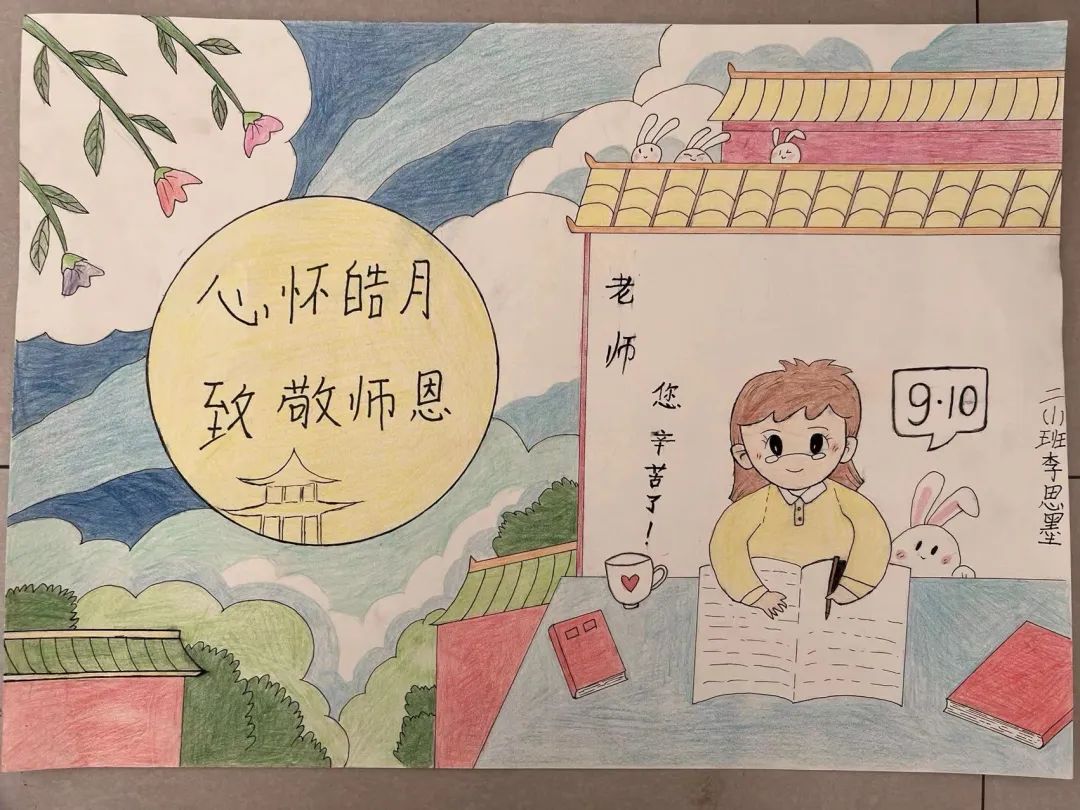 心怀皓月
致敬师恩
老师
您辛苦了！
9·10
二（1）班李思墨